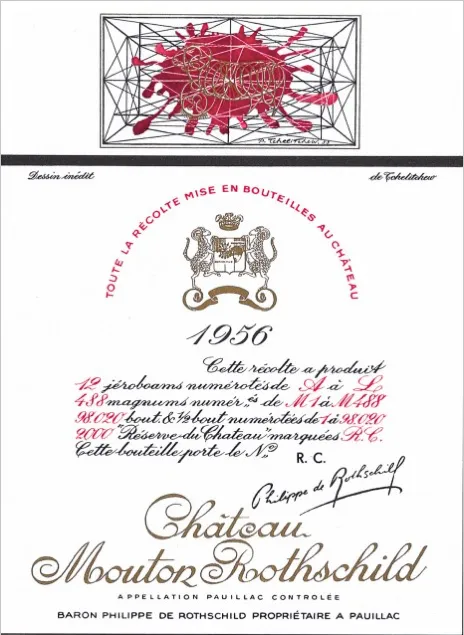 P. Tchelitchew.
Dessin inédit de Tchelitchew
TOUTE LA RÉCOLTE MISE EN BOUTEILLES AU CHÂTEAU
1956
Cette récolte a produit
12 jéroboams numérotés de A à L
488 magnums numér.és de M1 à M488
98.020 bout. & ½ bout numérotées de 1 à 98.020
2000 "Réserve du Chateau" marquées R.C.
Cette bouteille porte le No R. C.
Philippe de Rothschild
Château
Mouton Rothschild
APPELLATION PAUILLAC CONTROLÉE
BARON PHILIPPE DE ROTHSCHILD PROPRIÉTAIRE A PAUILLAC